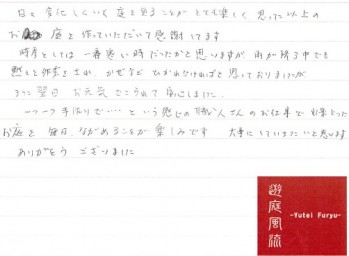 日々変化していく庭を見ることがとても楽しく思った以上の
お庭を作っていただいて感謝してます
時季としては一番寒い時だったかと思いますが、雨が降る中でも
黙々と作業をされ、かぜなどひかれなければと思っておりましたが
翌日お元気でこられて安心しました。
一つ一つ手作りで…という感じの職人さんのお仕事で出来上った
お庭を毎日ながめることが楽しみです 大事にしていきたいと思います
ありがとうございました
遊庭風流
-Yutei Furyu-